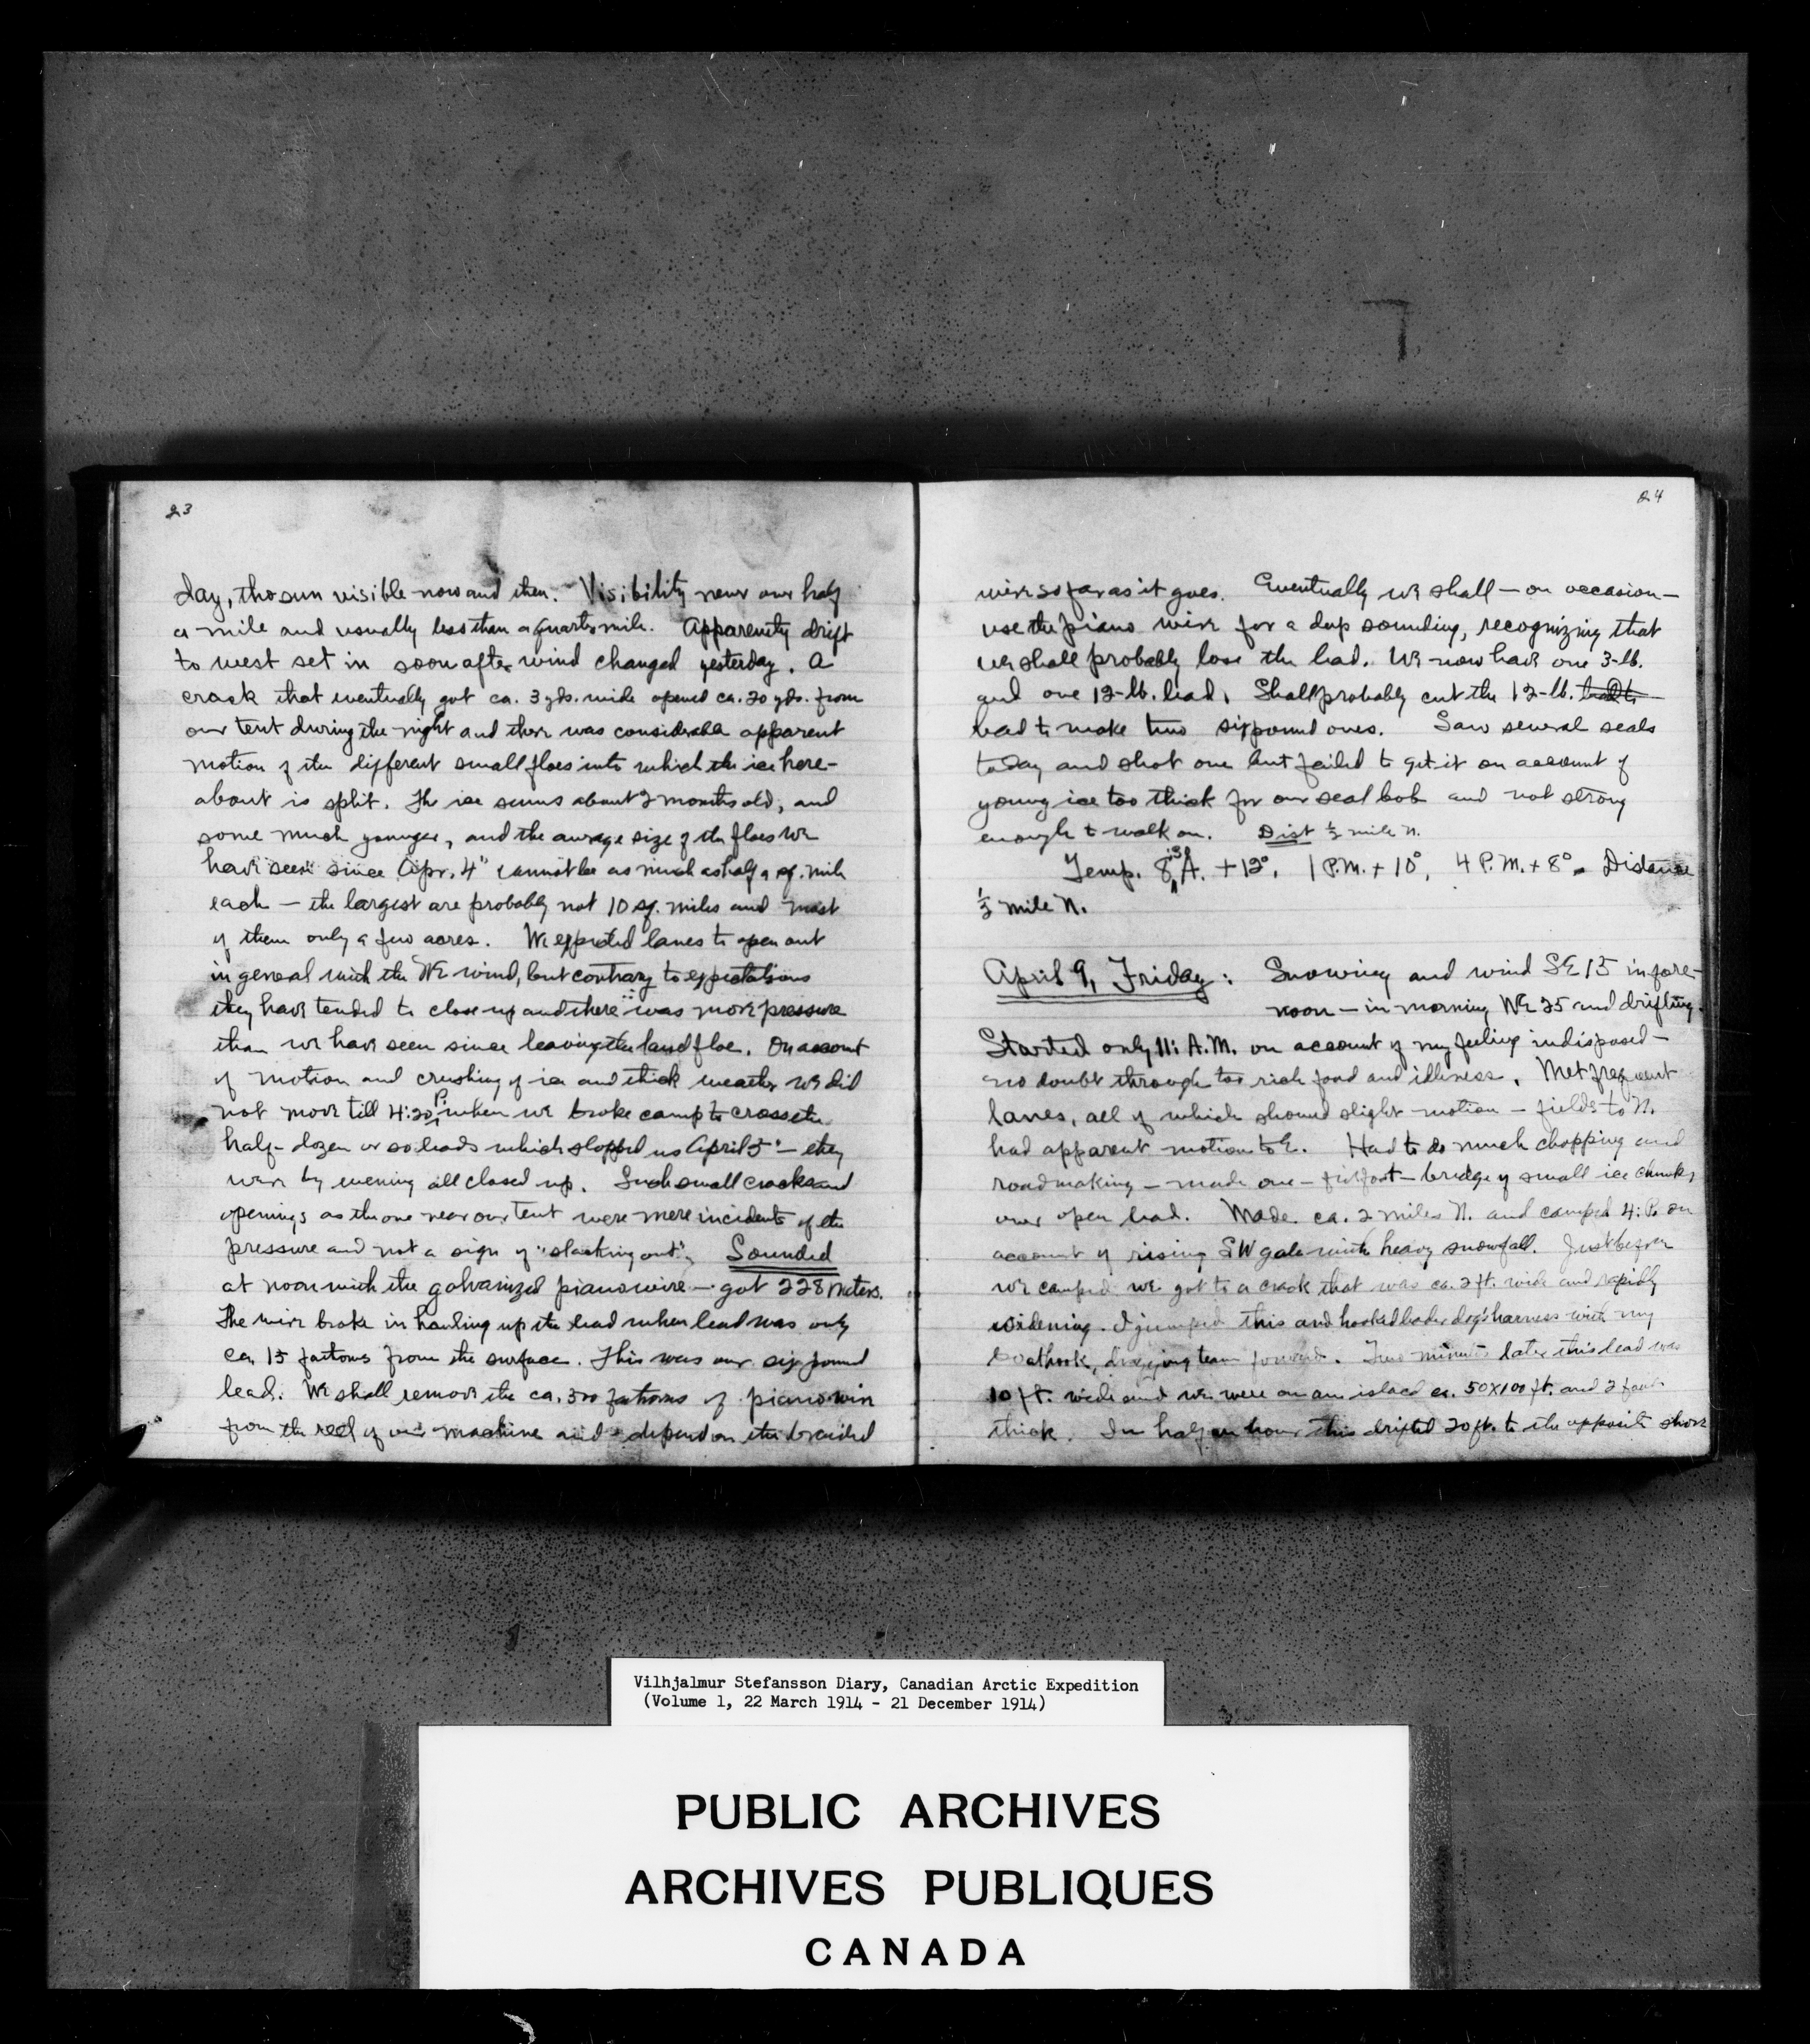 23
day, tho sun visible now and then. Visibility never over half
a mile and usually less than a quarter mile. Apparently drift
to west set in soon after wind changed yesterday. A
crack that eventually got ca. 3 yds. wide opened ca. 20 yds. from
our tent during the night and there was considerable apparent
motion of the different small floes into which the ice here-
about is split. The ice seems about 2 months old, and
some much younger, and the average size of the floes we
have seen since Apr. 4" cannot be as much as half a sq. mile
each — the largest are probably not 10 sq. miles and most
of them only a few acres. We expected lanes to open out
in general with the NE wind, but contrary to expectations
they have tended to close up and there was more pressure
than we have seen since leaving the land floe. On account
of motion and crushing of ice and thick weather we did
not move till 4:20 P. when we broke camp to cross the
half-dozen or so leads which stopped us April 5" — they
were by evening all closed up. Such small cracks and
openings as the one near our tent were mere incidents of the
pressure and not a sign of "slacking out". Sounded
at noon with the galvanized piano wire — got 228 meters.
The wire broke in hauling up the lead when lead was only
ca. 15 fathoms from the surface. This was our six pound
lead. We shall remove the ca. 500 fathoms of piano wire
from the reel of our machine and depend on the braided
24
wire so far as it goes. Eventually we shall — on occasion —
use the piano wire for a deep sounding, recognizing that
we shall probably lose the lead. We now have one 3-lb.
and one 12-lb. lead. Shall probably cut the 12-lb.
lead to make two six pound ones. Saw several seals
today and shot one but failed to get it on account of
young ice too thick for our seal bob and not strong
enough to walk on. Dist ½ mile N.
Temp. 8:15 A. +12°, 1 P.M. +10°, 4 P.M. +8°. Distance
½ mile N.
April 9, Friday: Snowing and wind SE 15 in fore-
noon — in morning NE 25 and drifting.
Started only 11: A.M. on account of my feeling indisposed —
no doubt through too rich food and idleness. Met frequent
lanes, all of which showed slight motion — fields to N.
had apparent motion to E. Had to do much chopping and
roadmaking — made one — bridge of small ice chunks
over open lead. Made ca. 2 miles N. and camped 4: P. on
account of rising SW gale with heavy snowfall. Just before
we camped we got to a crack that was ca. 2 ft. wide and rapidly
widening. I jumped this and hooked leader dog's harness with my
boathook, dragging team forward. Two minutes later this lead was
10 ft. wide and we were on an island ca. 50x100 ft. and 2 feet
thick. In half an hour this drifted 20 ft. to the opposite shore
Vilhjalmur Stefansson Diary, Canadian Arctic Expedition
(Volume 1, 22 March 1914 - 21 December 1914)
PUBLIC ARCHIVES
ARCHIVES PUBLIQUES
CANADA